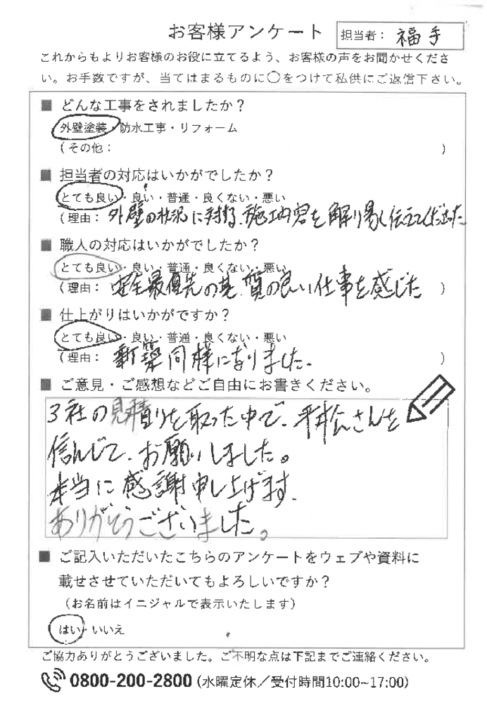 お客様アンケート 担当者: 福手
これからもよりお客様のお役に立てるよう、お客様の声をお聞かせくださ
い。お手数ですが、当てはまるものに○をつけて私供にご返信下さい。
■ どんな工事をされましたか?
外壁塗装・防水工事・リフォーム
(その他: )
■ 担当者の対応はいかがでしたか?
とても良い・良い・普通・良くない・悪い
(理由: 外壁の状況に対する、施工内容を解り易く伝えてくださった
■ 職人の対応はいかがでしたか?
とても良い・良い・普通・良くない・悪い
(理由: 安全最優先の基、質の良い仕事を感じた )
■ 仕上がりはいかがですか?
とても良い・良い・普通・良くない・悪い
(理由: 新築同様になりました。 )
■ ご意見・ご感想などご自由にお書きください。
3社の見積りを取った中で、平松さんを
信んじて、お願いしました。
本当に感謝申し上げます。
ありがとうございました。
■ ご記入いただいたこちらのアンケートをウェブや資料に
載せさせていただいてもよろしいですか?
(お名前はイニシャルで表示いたします)
はい・いいえ
ご協力ありがとうございました。ご不明な点は下記までご連絡ください。
0800-200-2800 (水曜定休/受付時間10:00~17:00)